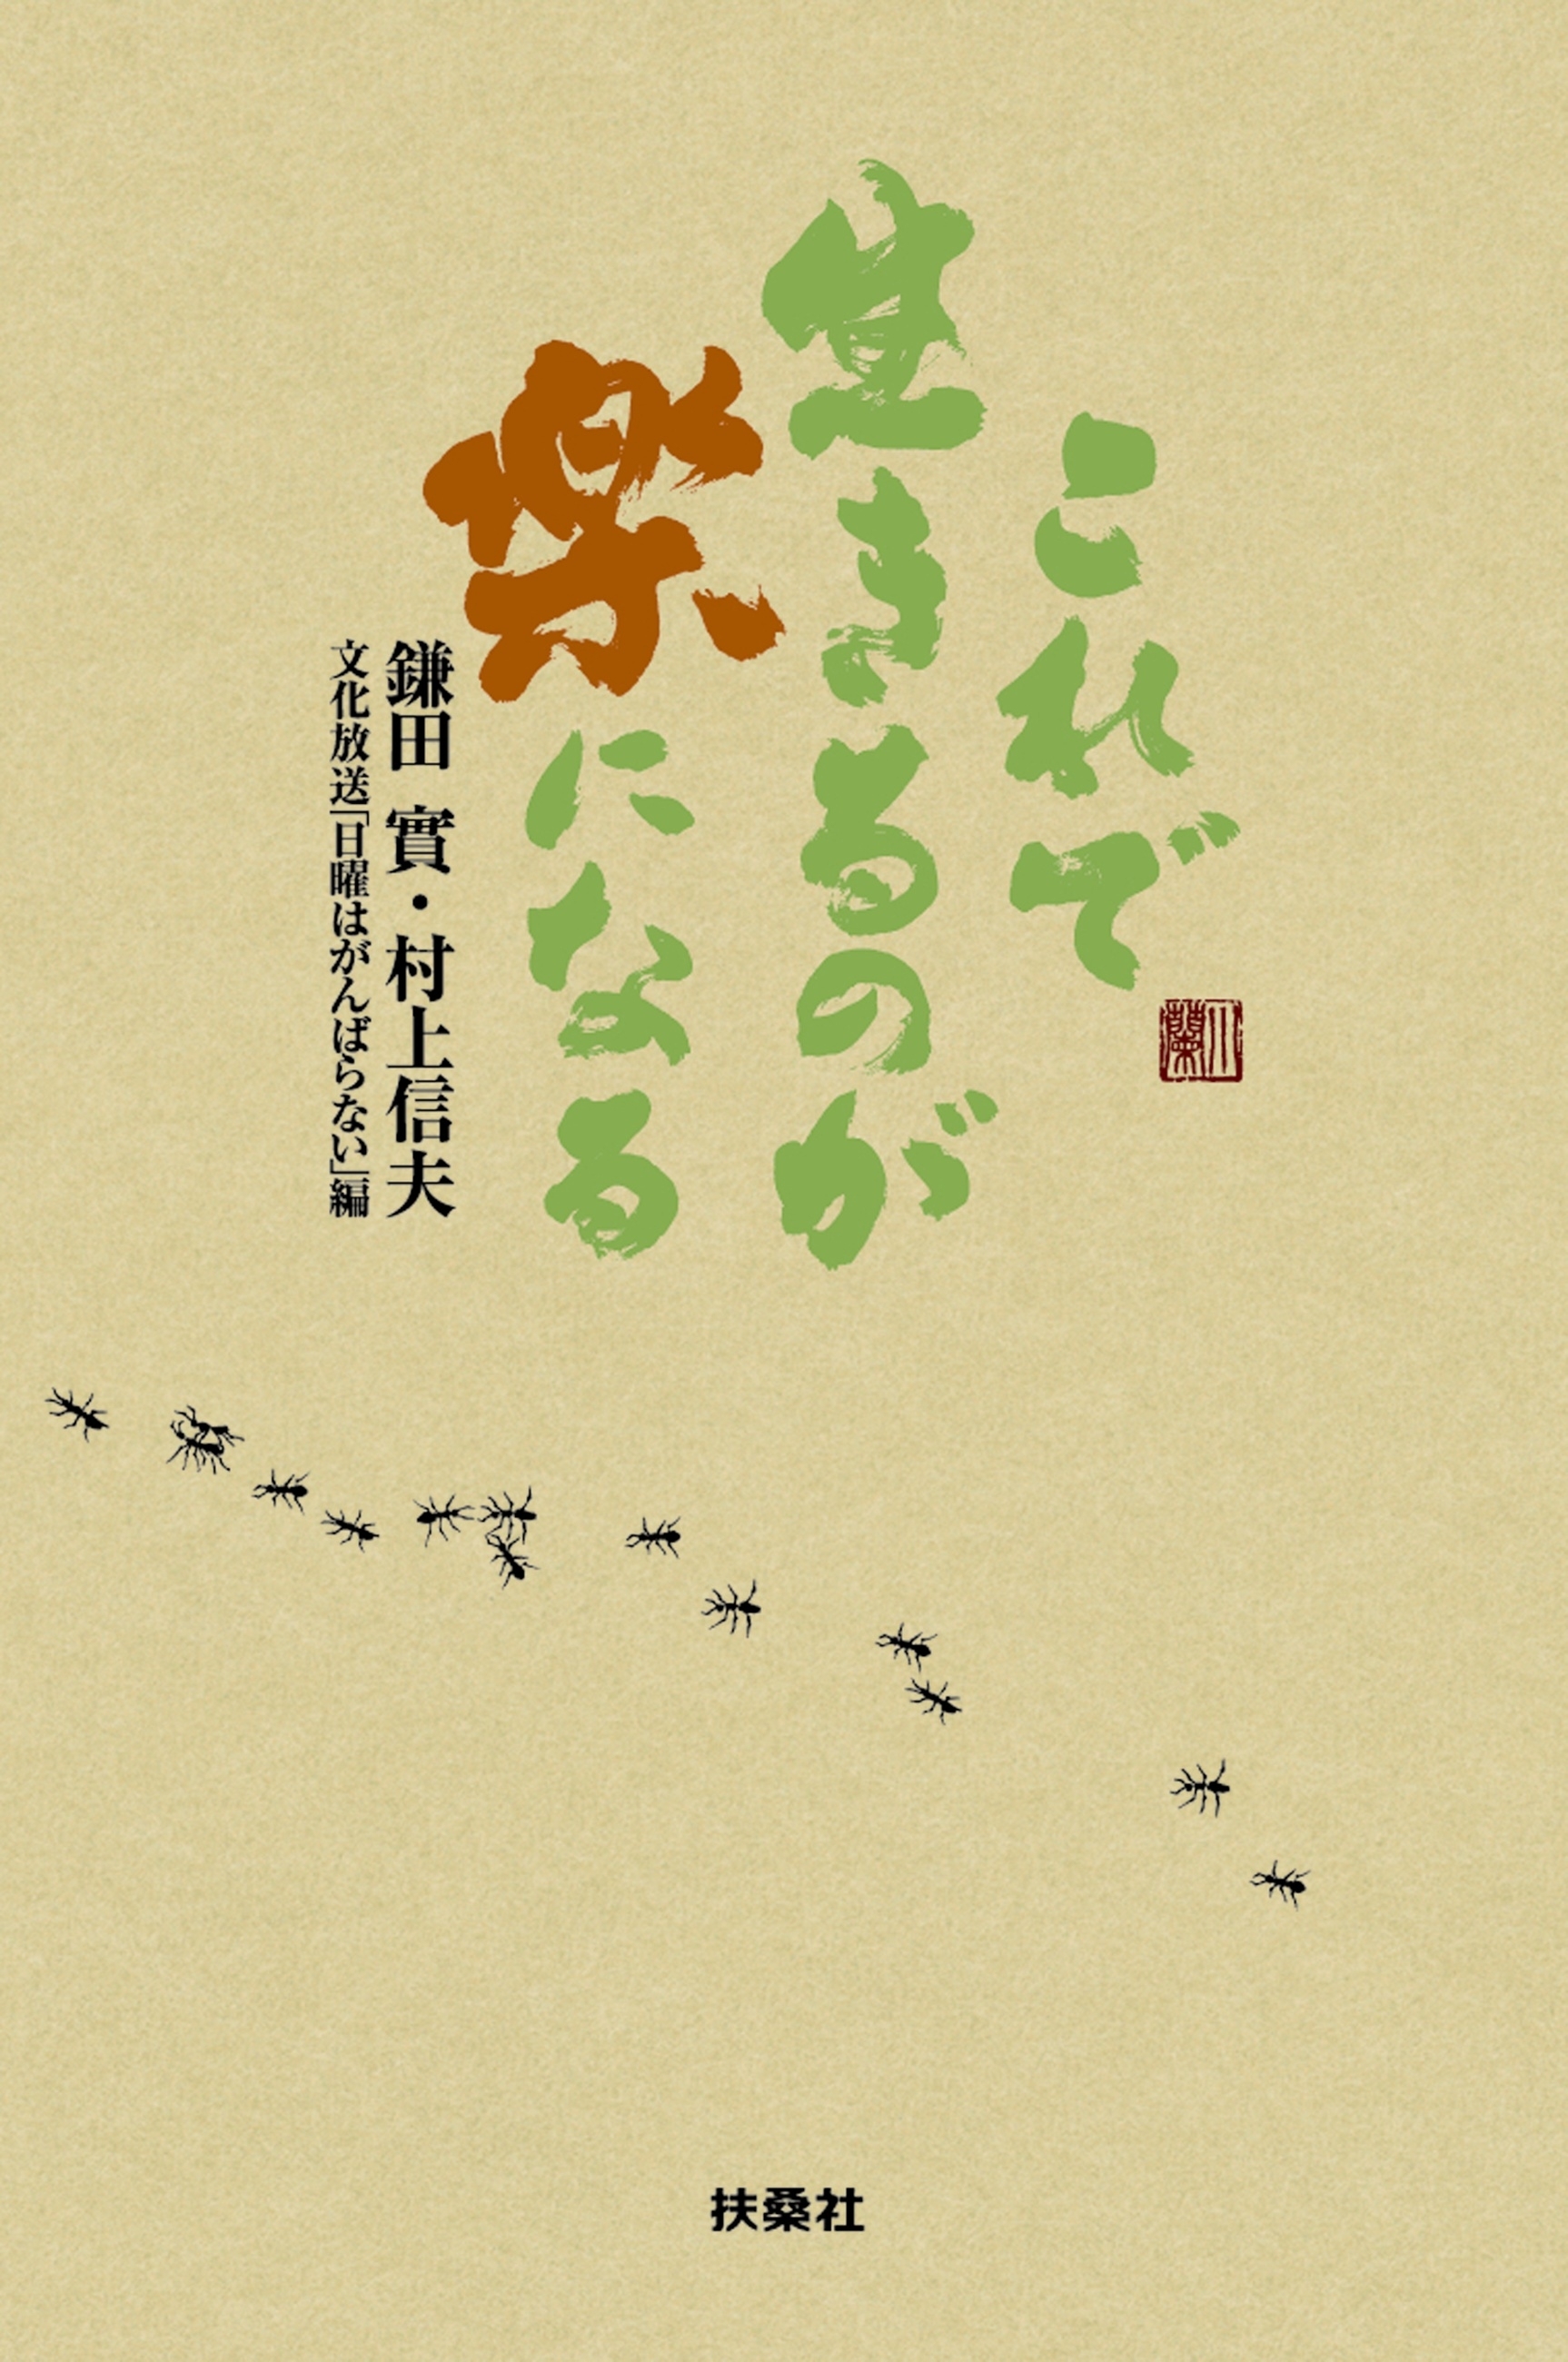 これで
生きるのが
楽になる
鎌田 實・村上信夫
文化放送「日曜はがんばらない」編
扶桑社